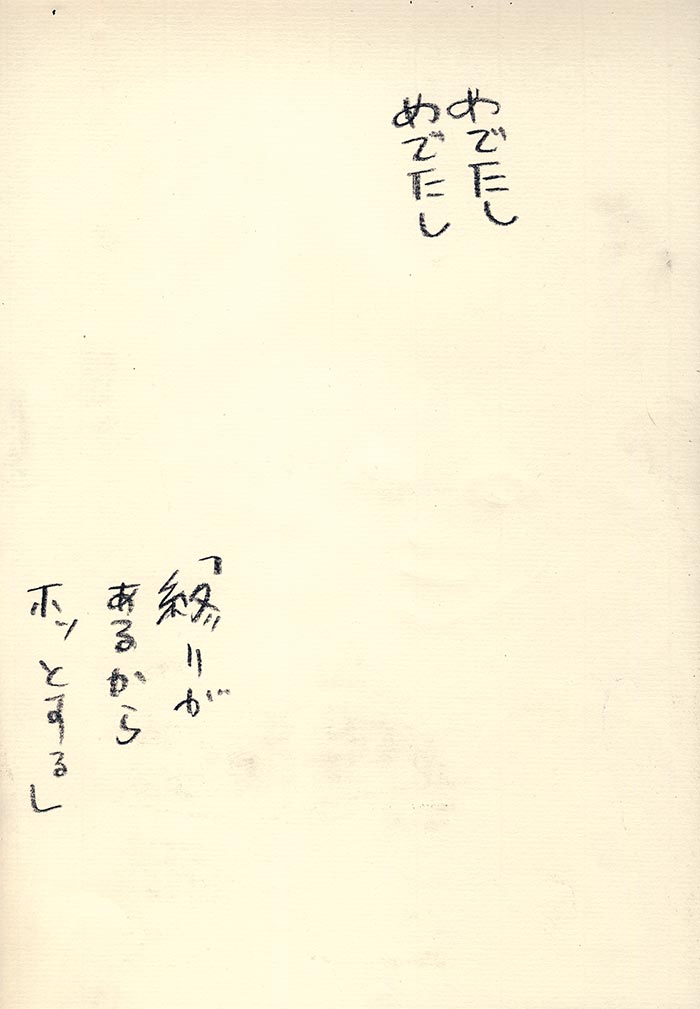 めでたし
めでたし
「終りが
あるから
ホッとする」